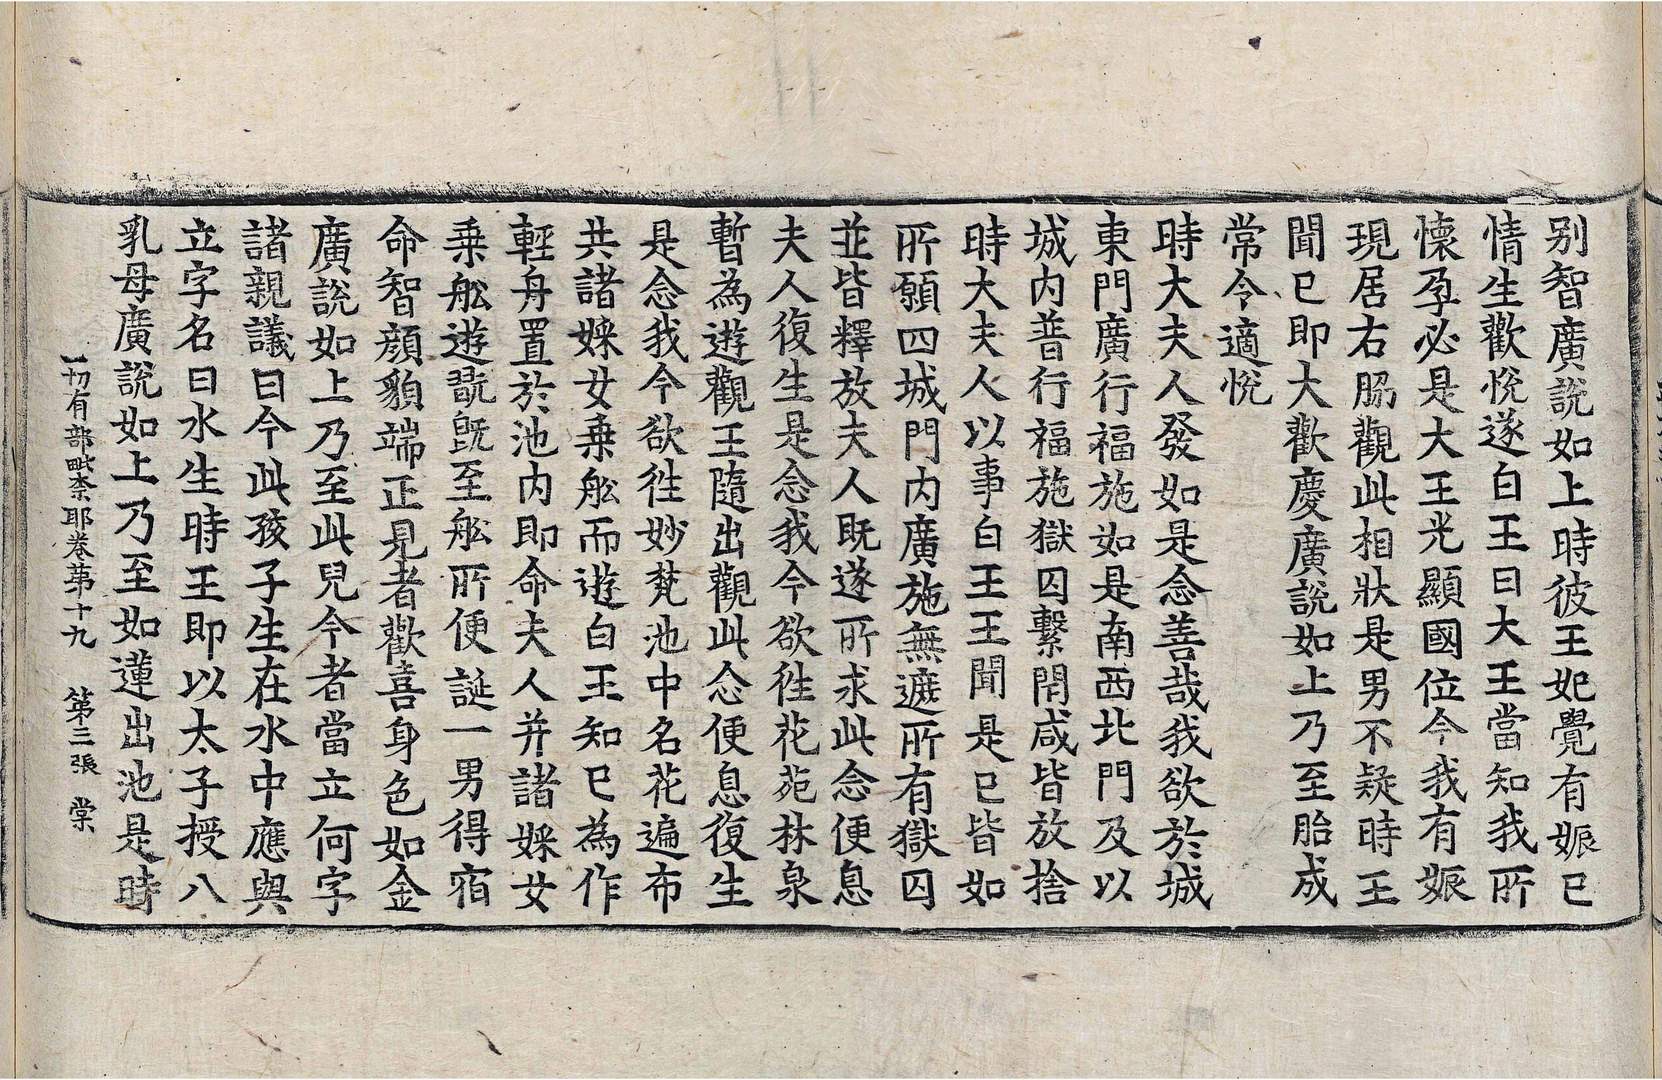 别智廣說如上時彼王妃覺有娠已
情生歡悅遂白王曰大王當知我所
懷孕必是大王光顯國位今我有娠
現居右脇觀此相狀是男不疑時王
聞已即大歡慶廣說如上乃至胎成
常令適悅
時大夫人發如是念善哉我欲於城
東門廣行福施如是南西北門及以
城内普行福施獄囚繫閇咸皆放捨
時大夫人以事白王王聞是已皆如
所願四城門内廣施無遮所有獄囚
並皆釋放夫人既遂所求此念便息
夫人復生是念我今欲徃花苑林泉
暫為遊觀王隨出觀此念便息復生
是念我今欲徃妙梵池中名花遍布
共諸婇女乗舩而遊白王知已為作
輕舟置於池内即命夫人并諸婇女
乗舩遊翫旣至舩所便誕一男得宿
命智顔㒵端正見者歡喜身色如金
廣說如上乃至此兒今者當立何字
諸親議曰今此孩子生在水中應與
立字名曰水生時王即以太子授八
乳母廣說如上乃至如蓮出池是時
一切有部毗柰耶卷第十九 第三張 棠